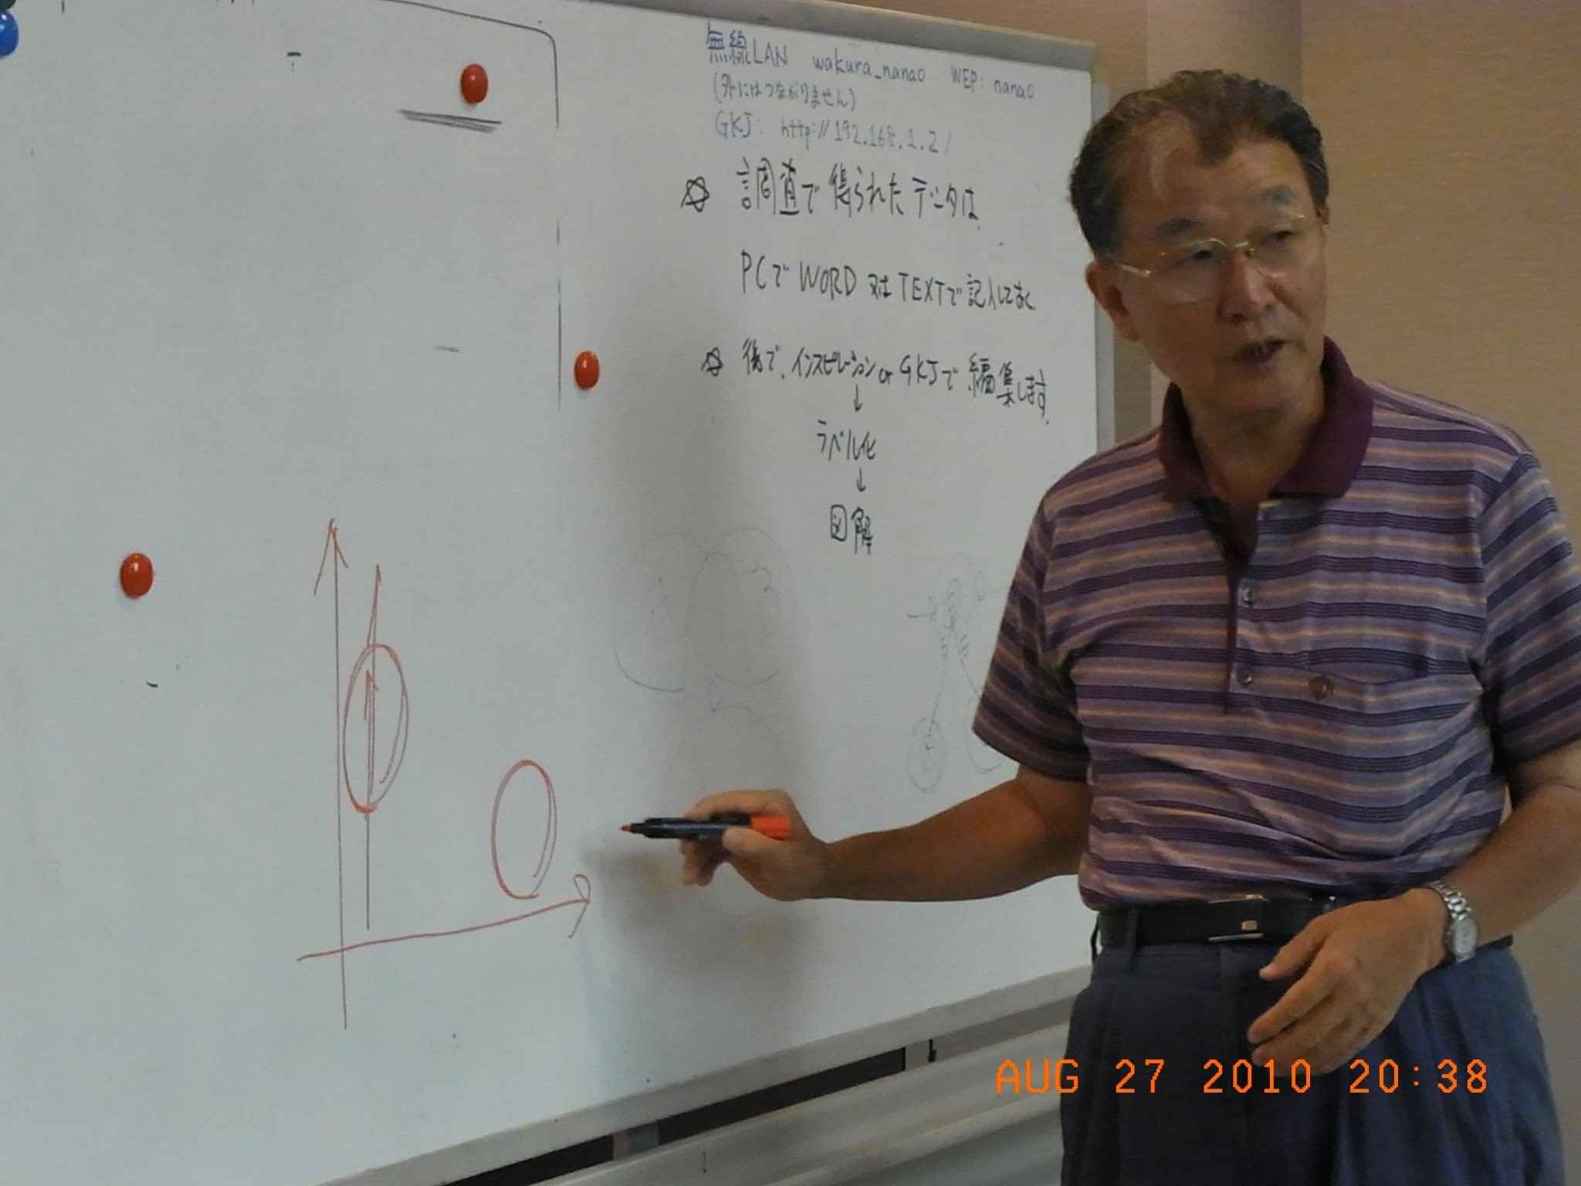 無線LAN wakura_nanao WEP: nanao
(外にはつながりません)
GKJ: http://192.168.1.2/
☆ 調査で得られたデータは
PCで WORD 又は TEXTで記入しておく
☆ 後で、インスピレーション or GKJで編集します。
↓
ラベル化
↓
図解
AUG 27 2010 20:38